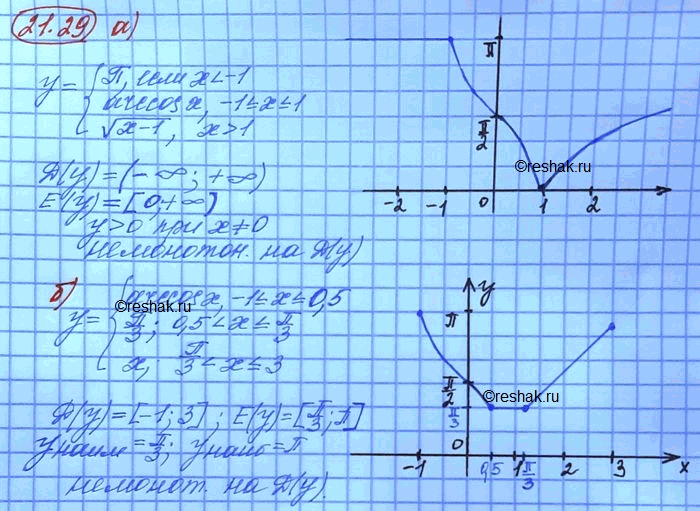 21.29 а)
y = { π, если x<-1
arccos x, -1≤x≤1
√(x-1), x>1
Д(y)=(-∞; +∞)
E(y)=[0,+∞)
y>0 при x≠0
немонотон. на Д(y)
π
π/2
-2 -1 0 1 2
©reshak.ru
б)
y = { arccos x, -1≤x≤0,5
π/3; 0,5<x≤π/3
x, π/3<x≤3
©reshak.ru
Д(y)=[-1; 3]; E(y)=[π/3; π]
y наим = π/3; y наиб = π
немонот. на Д(y).
y
π
π/2
π/3
0
-1 0,5 1 π/3 2 3 x
©reshak.ru